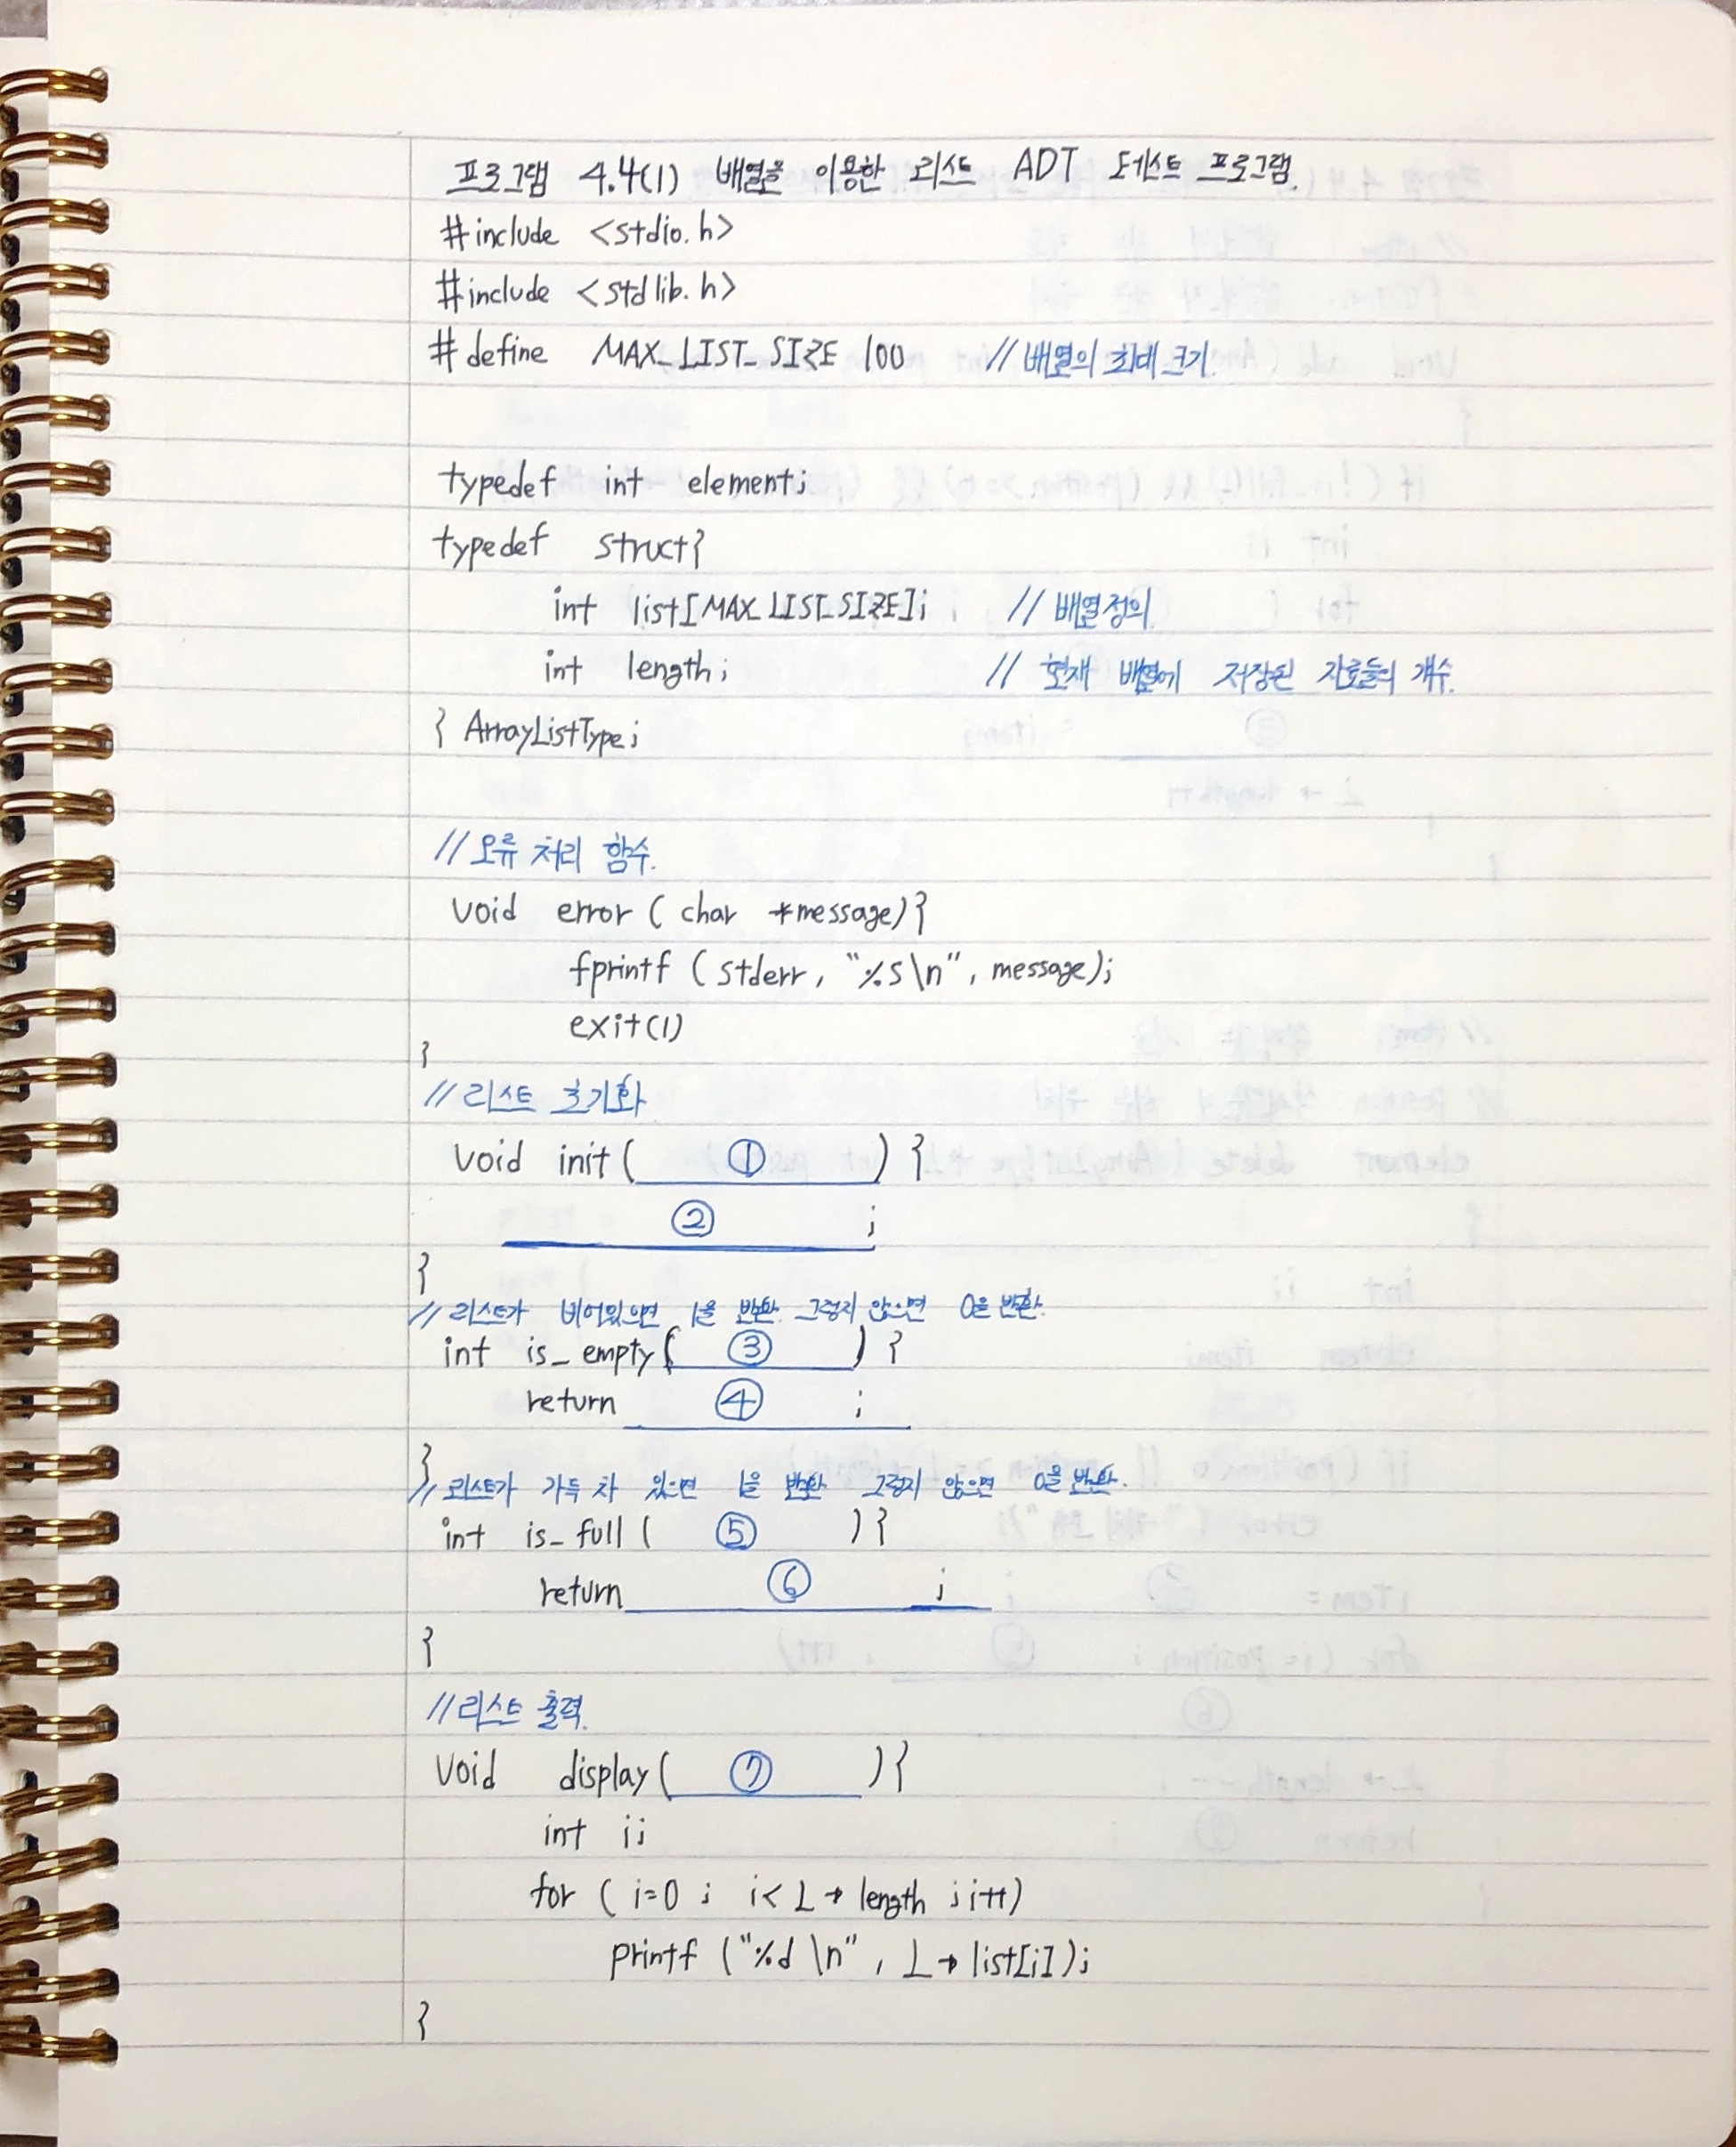 프로그램 4.4(1) 배열을 이용한 리스트 ADT 테스트 프로그램.
#include <stdio.h>
#include <stdlib.h>
#define MAX_LIST_SIZE 100 // 배열의 최대크기.
typedef int element;
typedef struct{
int list[MAX_LIST_SIZE]; // 배열정의.
int length; // 현재 배열에 저장된 자료들의 개수.
} ArrayListType;
// 오류 처리 함수.
void error ( char *message){
fprintf ( stderr, "%s\n", message);
exit(1)
}
// 리스트 초기화
void init( ① ) {
② ;
}
// 리스트가 비어있으면 1을 반환. 그렇지 않으면 0을 반환.
int is_empty( ③ ) {
return ④ ;
}
// 리스트가 가득 차 있으면 1을 반환 그렇지 않으면 0을 반환.
int is_full ( ⑤ ){
return ⑥ ;
}
// 리스트 출력.
void display( ⑦ ){
int i;
for ( i=0 ; i< L→length ; i++)
printf ("%d \n" , L→list[i]);
}